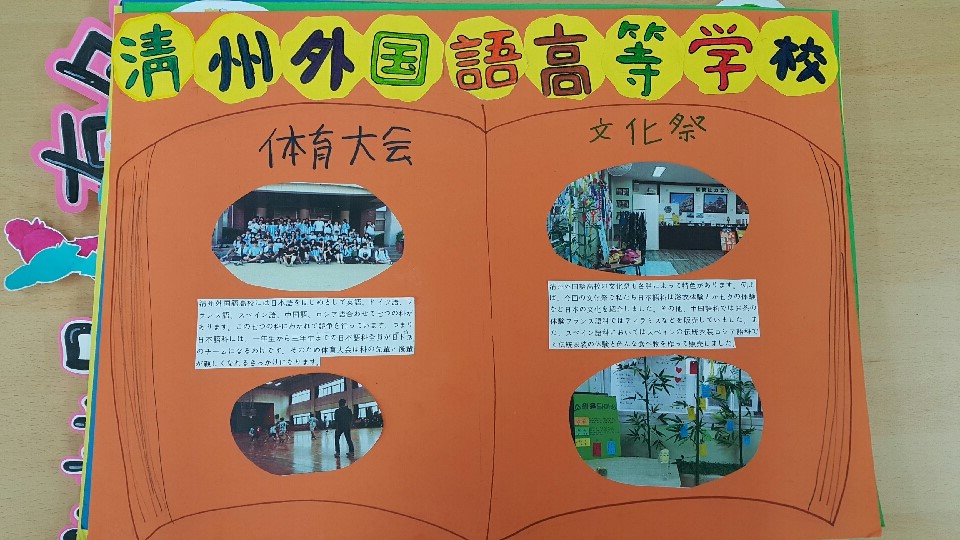 清州外国語高等学校
体育大会
文化祭
清州外国語高校には日本語をはじめとして英語、ドイツ語、フ
ランス語、スペイン語、中国語、ロシア語合わせて七つの科が
あります。この七つの科にわかれて競争を行っています。つまり
日本語科には、一年生から三年生までの日本語科全員が
のチームになるわけです。そのため体育大会は科の先輩と後輩
が親しくなれるきっかけになります。
清州外国語高校の文化祭も各科によって特色があります。例え
ば、今回の文化祭で私たち日本語科は浴衣体験とか七夕の体験
など日本の文化を紹介しました。その他、中国語科ではお茶の
体験フランス語科ではティラミスなどを販売していました。ま
た、スペイン語科においてはスペインの伝統衣装ロシア語科で
伝統衣装の体験と色んな食べ物を作って販売しました。